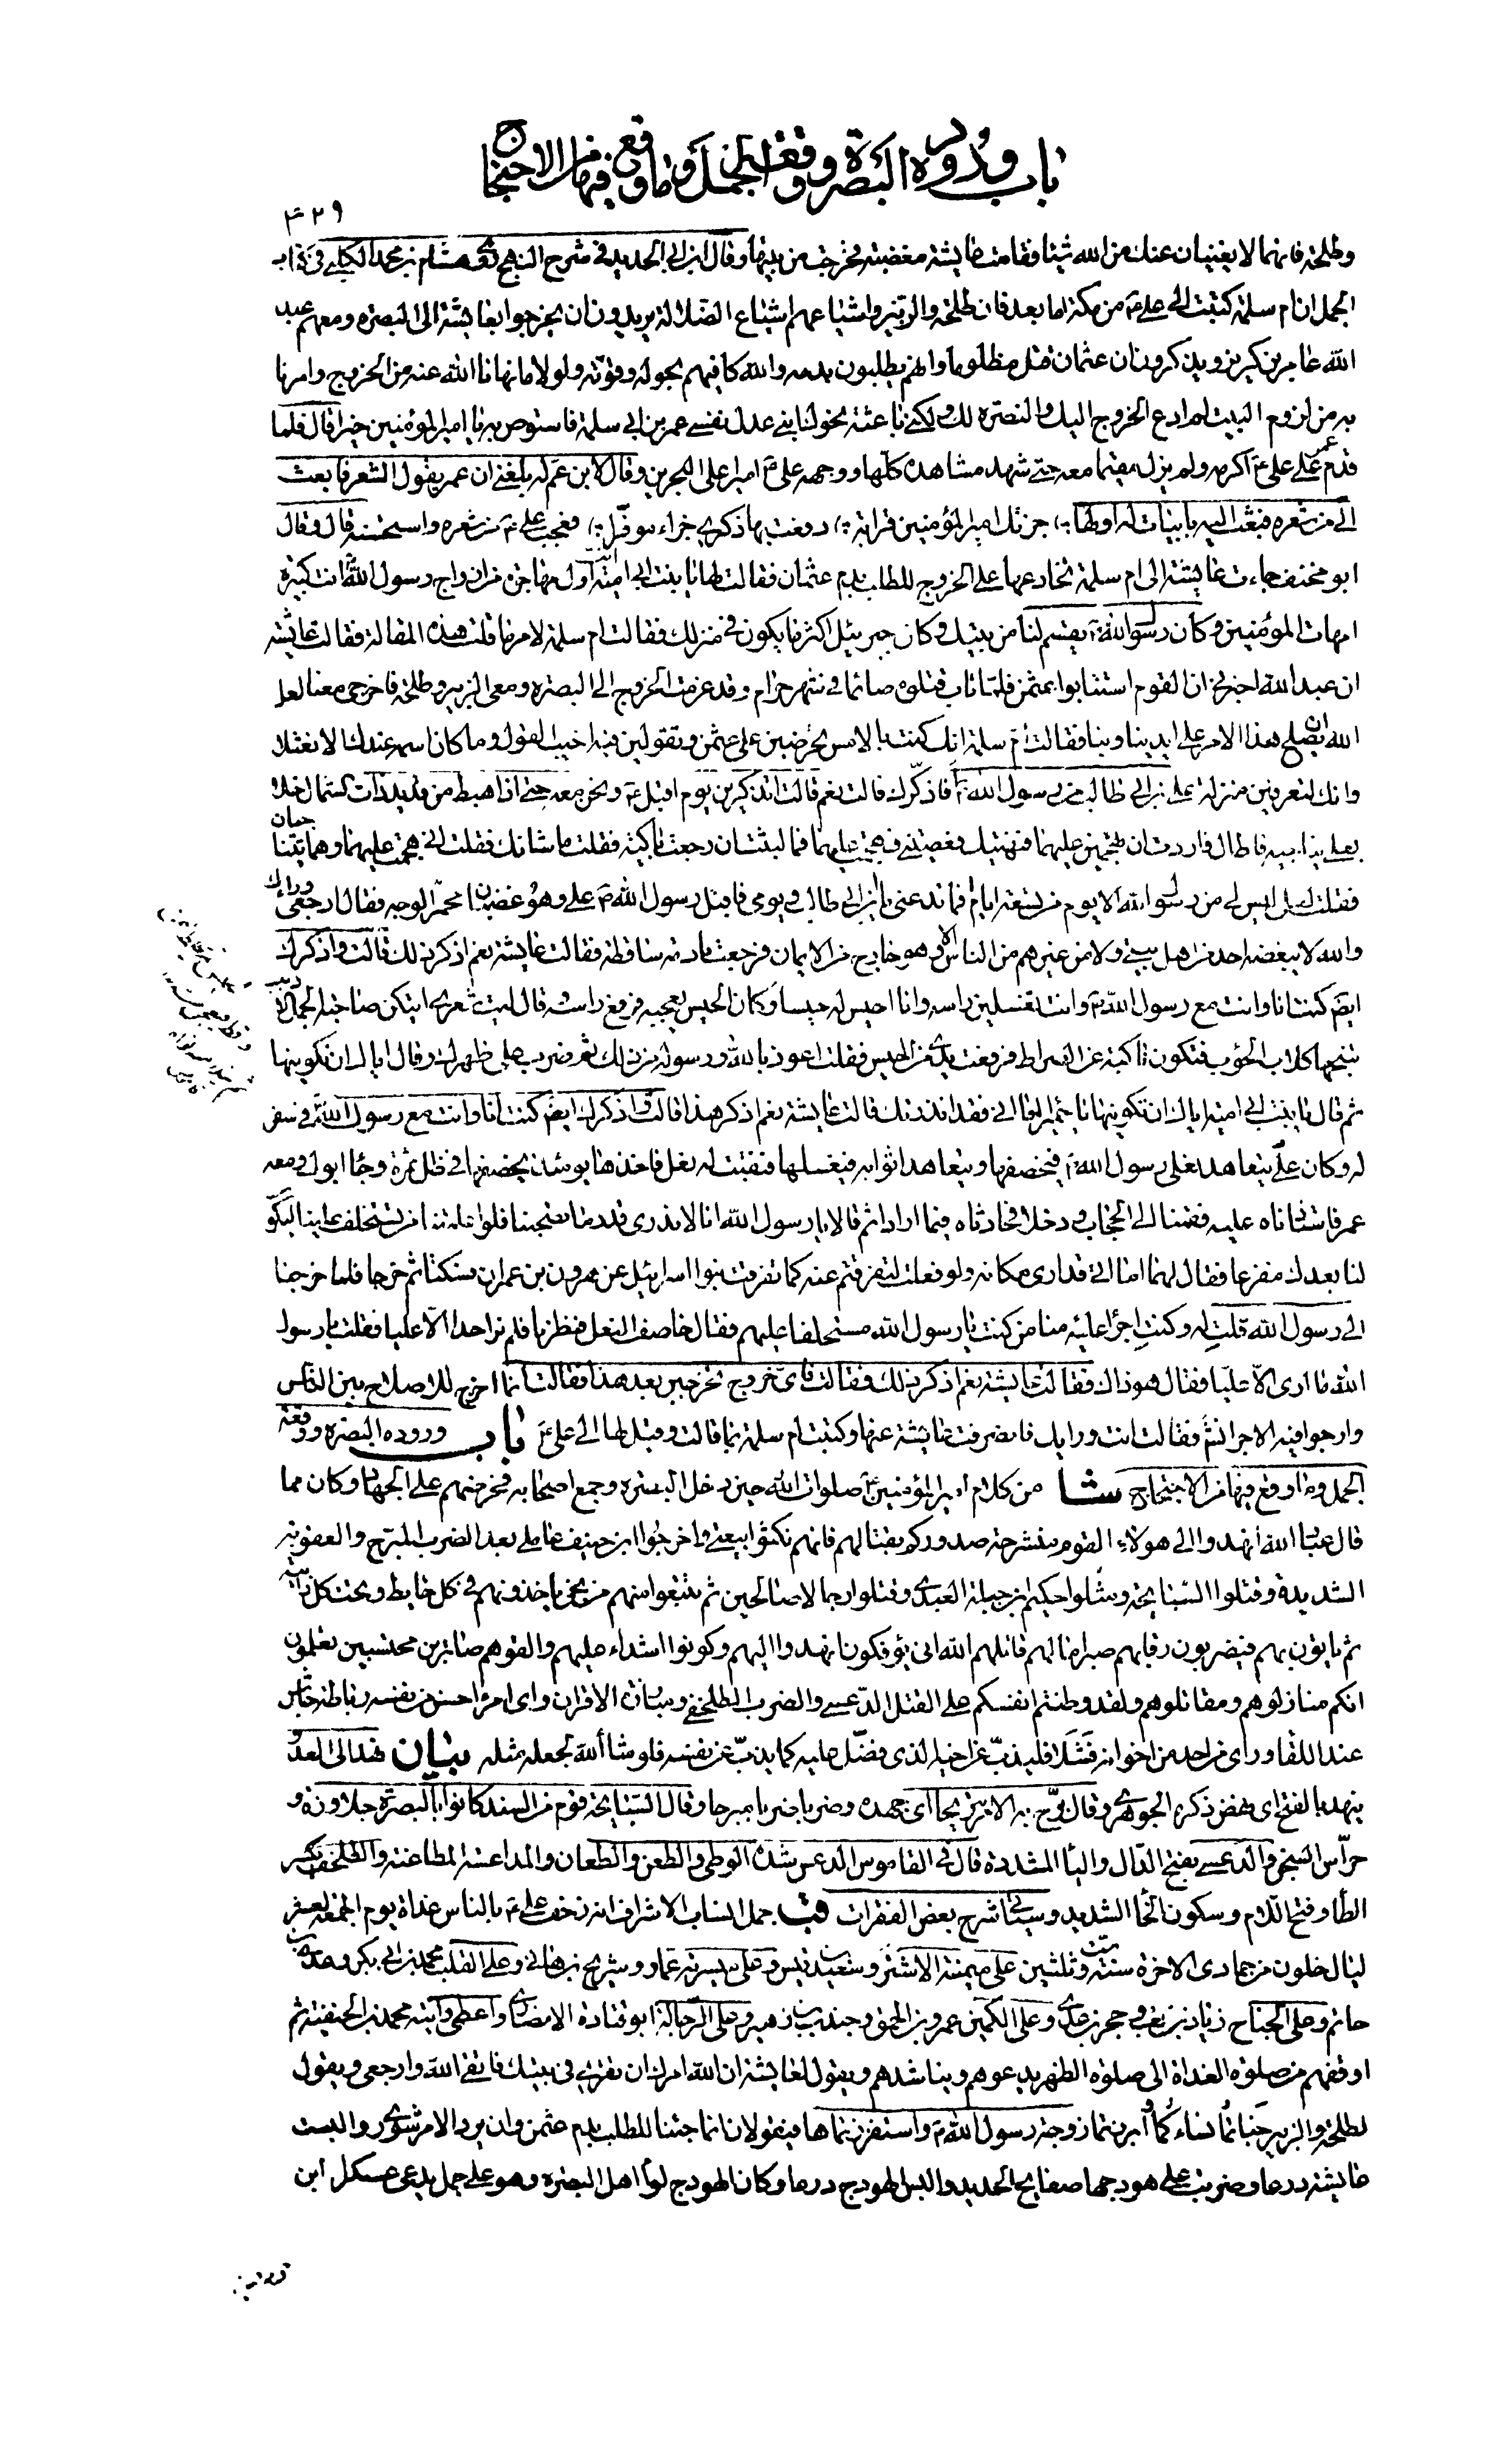 باب وروده البصرة ووقعة الجمل وما وقع فيها من الاحتجاج
۴۲۹
وطلحة فانهما لا يغنيان عنك من الله شيئا فقامت عايشة مغضبة فخرجت من بيتها وقال ابن ابي الحديد في شرح النهج روى هشام بن محمد الكلبي في كتاب
الجمل ان ام سلمة كتبت الى علي ع من مكة اما بعد فان طلحة والزبير واشياعهم اشياع الضلالة يريدون ان يخرجوا بعايشة الى البصرة ومعهم عبد
الله عامر بن كريز ويذكرون ان عثمان قتل مظلوما وانهم يطلبون بدمه والله كافيهم بحوله وقوته ولولا ما نهانا الله عنه من الخروج وامرنا
به من لزوم البيت لم ادع الخروج اليك والنصرة لك ولكني باعثة نحوك ابني عدل نفسي عمر بن ابي سلمة فاستوص به يا امير المؤمنين خيرا قال فلما
قدم عمر على علي ع اكرمه ولم يزل مقيما معه حتى شهد مشاهده كلها ووجهه علي ع اميرا على البحرين وقال لابن عم له بلغني ان عمر يقول الشعر فابعث
الي من شعره فبعث اليه بابيات له اولها جزتك امير المؤمنين قرابة رفعت بها ذكري جزاء موفرا فعجب علي ع من شعره واستحسنه قال وقال
ابو مخنف جاءت عايشة الى ام سلمة تخادعها على الخروج للطلب بدم عثمان فقالت لها يا بنت ابي امية انت اول مهاجرة من ازواج رسول الله ص وانت كبيرة
امهات المؤمنين وكان رسول الله ص يقسم لنا من بيتك وكان جبرئيل اكثر ما يكون في منزلك فقالت ام سلمة لامر ما قلت هذه المقالة فقالت عايشة
ان عبد الله اخبرني ان القوم استتابوا عثمن فلما تاب قتلوه صائما في شهر حرام وقد عزمت الخروج الى البصرة ومعي الزبير وطلحة فاخرجي معنا لعل
الله ان يصلح هذا الامر على ايدينا وبنا فقالت ام سلمة انك كنت بالامس تحرضين على عثمن وتقولين فيه اخبث القول وما كان اسمه عندك الا نعثلا
وانك لتعرفين منزلة علي بن ابي طالب عند رسول الله ص افاذكرك قالت نعم قالت اتذكرين يوم اقبل ع ونحن معه حتى اذا هبط من قديد ذات الشمال خلا
بعلي يناجيه فاطال فاردت ان تهجمين عليهما فنهيتك فعصيتني فهجمت عليهما فما لبثت ان رجعت باكية فقلت ما شانك فقلت اني هجمت عليهما وهما يتناجيان
فقلت لعلي ليس لي من رسول الله الا يوم من تسعة ايام فما تدعني يا بن ابي طالب ويومي فاقبل رسول الله ص علي وهو غضبان محمر الوجه فقال ارجعي وراءك
والله لا يبغضه احد من اهل بيتي ولا من غيرهم من الناس الا وهو خارج من الايمان فرجعت نادمة ساقطة فقالت عايشة نعم اذكر ذلك قالت واذكرك
ايضا كنت انا وانت مع رسول الله ص وانت تغسلين راسه وانا احيس له حيسا وكان الحيس يعجبه فرفع راسه وقال ليت شعري ايتكن صاحبة الجمل الادبب
تنبحها كلاب الحوئب فتكون ناكبة عن الصراط فرفعت يدي من الحيس فقلت اعوذ بالله ورسوله من ذلك ثم ضرب على ظهرك وقال اياك ان تكونيها
ثم قال يا بنت ابي امية اياك ان تكونيها يا حميراء اما اني فقد انذرتك قالت عايشة نعم اذكر هذا قالت واذكرك ايضا كنت انا وانت مع رسول الله ص في سفر
له وكان علي يتعاهد نعلي رسول الله ص فيخصفها ويتعاهد اثوابه فيغسلها فنقبت له نعل فاخذها يومئذ يخصفها في ظل سمرة وجاء ابوك ومعه
عمر فاستاذناه عليه فقمنا الى الحجاب ودخلا فحادثاه فيما ارادا ثم قالا يا رسول الله انا لا ندري قدر ما تصحبنا فلو اعلمتنا من تستخلف علينا ليكون
لنا بعدك مفزعا فقال لهما اما اني قد ارى مكانه ولو فعلت لتفرقتم عنه كما تفرقت بنوا اسرائيل عن هرون بن عمران فسكتا ثم خرجا فلما خرجنا
الى رسول الله قلت له وكنت اجرأ عليه منا من كنت يا رسول الله مستخلفا عليهم فقال خاصف النعل فنظرنا فلم نر احدا الا عليا فقلت يا رسول
الله ما ارى الا عليا فقال هو ذاك فقالت عايشة نعم اذكر ذلك فقالت فاي خروج تخرجين بعد هذا فقالت انما اخرج للاصلاح بين الناس
وارجو فيه الاجر انش فقالت انت ورايك فانصرفت عايشة عنها وكتبت ام سلمة بما قالت وقيل لها الى علي ع باب وروده البصرة ووقعة
الجمل وما وقع فيها من الاحتجاج شا من كلام امير المؤمنين صلوات الله حين دخل البصرة وجمع اصحابه فحرضهم على الجهاد وكان مما
قال عباد الله انهدوا الى هولاء القوم منشرحة صدوركم بقتالهم فانهم نكثوا بيعتي واخرجوا ابن حنيف عاملي بعد الضرب المبرح والعقوبة
الشديدة وقتلوا السبابجة ومثلوا حكيم بن جبلة العبدي وقتلوا رجالا صالحين ثم تتبعوا منهم من نجا ياخذونهم في كل حايط وتحت كل رابية
ثم ياتون بهم فيضربون رقابهم صبرا ما لهم قاتلهم الله انى يؤفكون انهدوا اليهم وكونوا اشداء عليهم والقوهم صابرين محتسبين تعلمون
انكم منازلوهم ومقاتلوهم ولقد وطنتم انفسكم على القتل الدعسي والضرب الطلخفي ومبارزة الاقران واي امرء احسن من نفسه رباطة جاش
عند اللقاء وراى من احد من اخوانه فشلا فليذب عن اخيه الذي فضل عليه كما يذب عن نفسه فلو شاء الله لجعله مثله بيان نهد الى العدو
ينهد بالفتح اى نهض ذكره الجوهري وقال برح به الامر تبريحا اى جهده وضربه ضربا مبرحا وقال السبابجة قوم من السند كانوا بالبصرة جلاوزة و
حراس السجن والدعسي بفتح الدال والياء المشددة قال في القاموس الدعس شدة الوطي والطعن والطعان والمداعسة المطاعنة والطلخف بكسر
الطاء وفتح اللام وسكون الخاء الشديد وسيأتي شرح بعض الفقرات قب جمل انساب الاشراف انه زحف علي ع بالناس غداة يوم الجمعة لعشر
ليال خلون من جمادى الاخرة سنة ست وثلثين على ميمنته الاشتر وسعيد بن قيس وعلى ميسرته عمار وشريح بن هاني وعلى القلب محمد بن ابي بكر وعدي بن
حاتم وعلى الجناح زياد بن كعب وحجر بن عدي وعلى الكمين عمرو بن الحمق وجندب بن زهير وعلى الرجالة ابو قتادة الانصاري واعطى رايته محمد بن الحنفية ثم
اوقفهم من صلوة الغداة الى صلوة الظهر يدعوهم ويناشدهم ويقول لعايشة ان الله امرك ان تقري في بيتك فاتقي الله وارجعي ويقول
لطلحة والزبير خباتما نساءكما وابرزتما زوجة رسول الله ص واستفززتماها فيقولان انما جئنا للطلب بدم عثمن وان يرد الامر شورى والبست
عايشة درعا وضربت على هودجها صفايح الحديد والبس الهودج درعا وكان الهودج لواء اهل البصرة وهو على جمل يدعى عسكر ابن